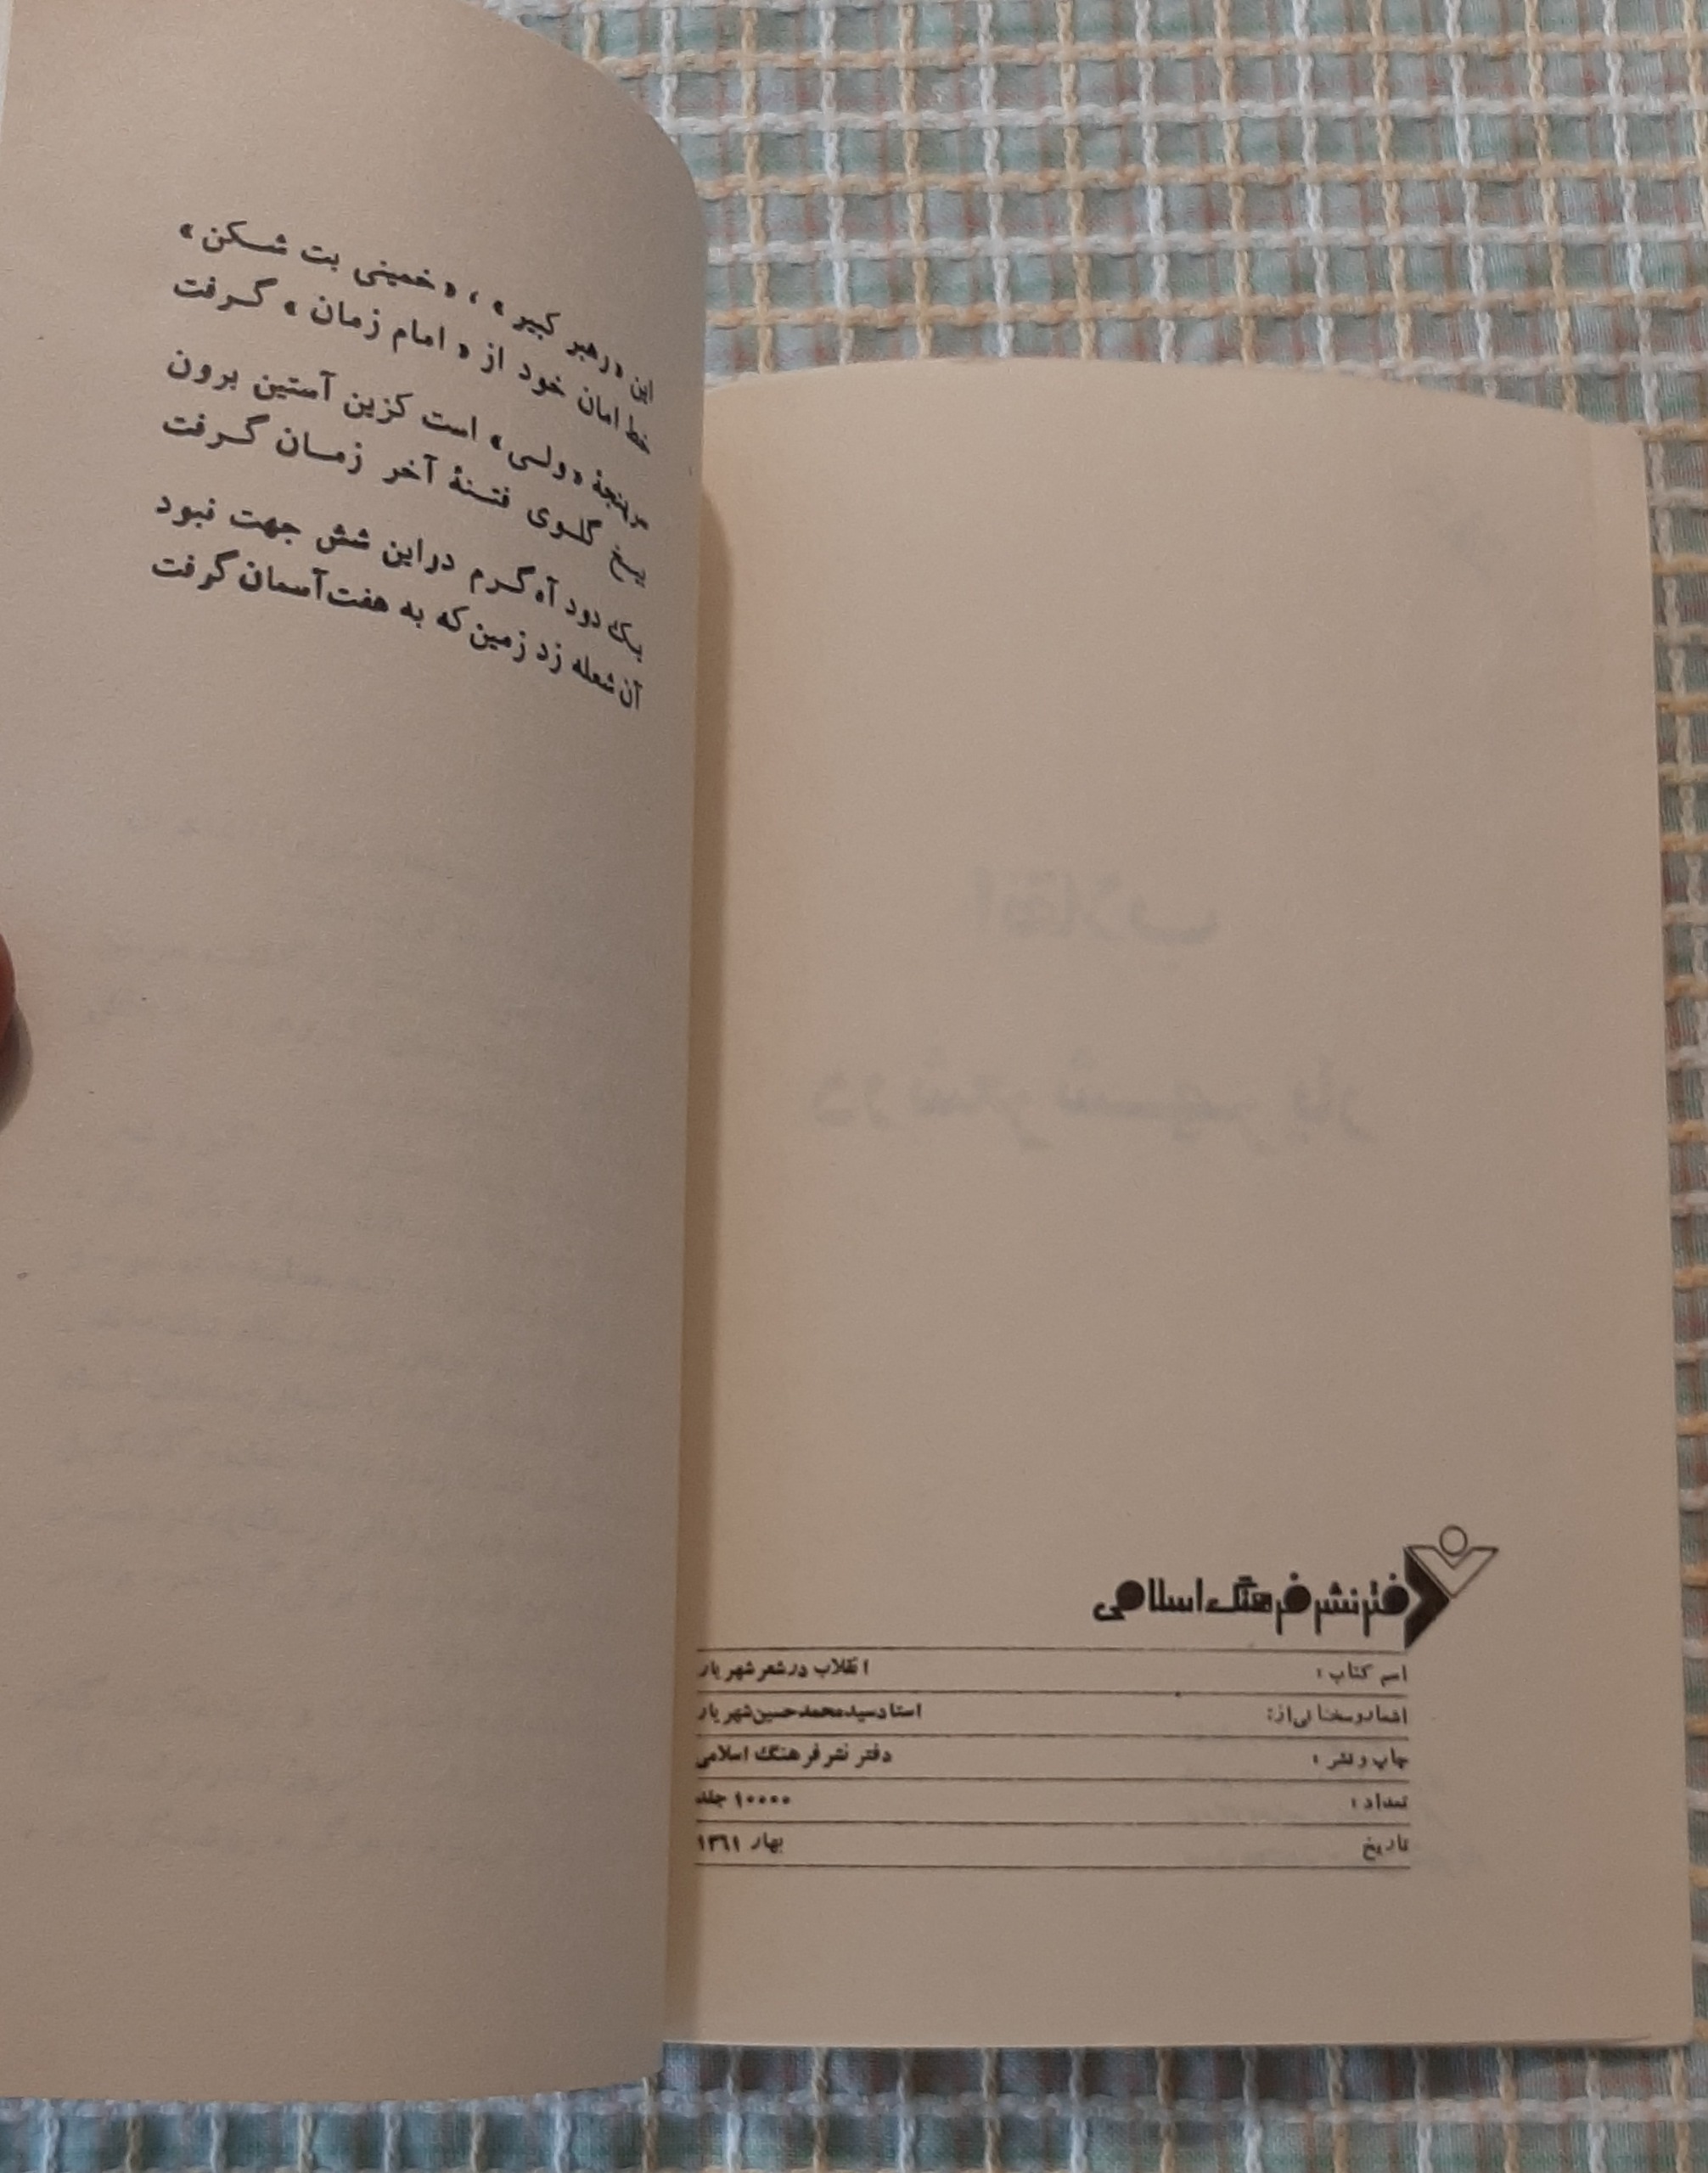 انقلاب
در شعر شهریار
دفتر نشر فرهنگ اسلامی
اسم کتاب : انقلاب در شعر شهریار
اشعار و سخنانی از: استاد سید محمد حسین شهریار
چاپ و نشر : دفتر نشر فرهنگ اسلامی
تعداد : ۱۰۰۰۰ جلد
تاریخ بهار ۱۳۶۱
این «رهبر کبیر» ، «خمینی بت شکن»
خط امان خود از «امام زمان» گرفت
سرپنجهٔ «ولی» است کزین آستین برون
بیخ گلوی فتنهٔ آخر زمان گرفت
یک دود آه گرم در این شش جهت نبود
آن شعله زد زمین که به هفت آسمان گرفت